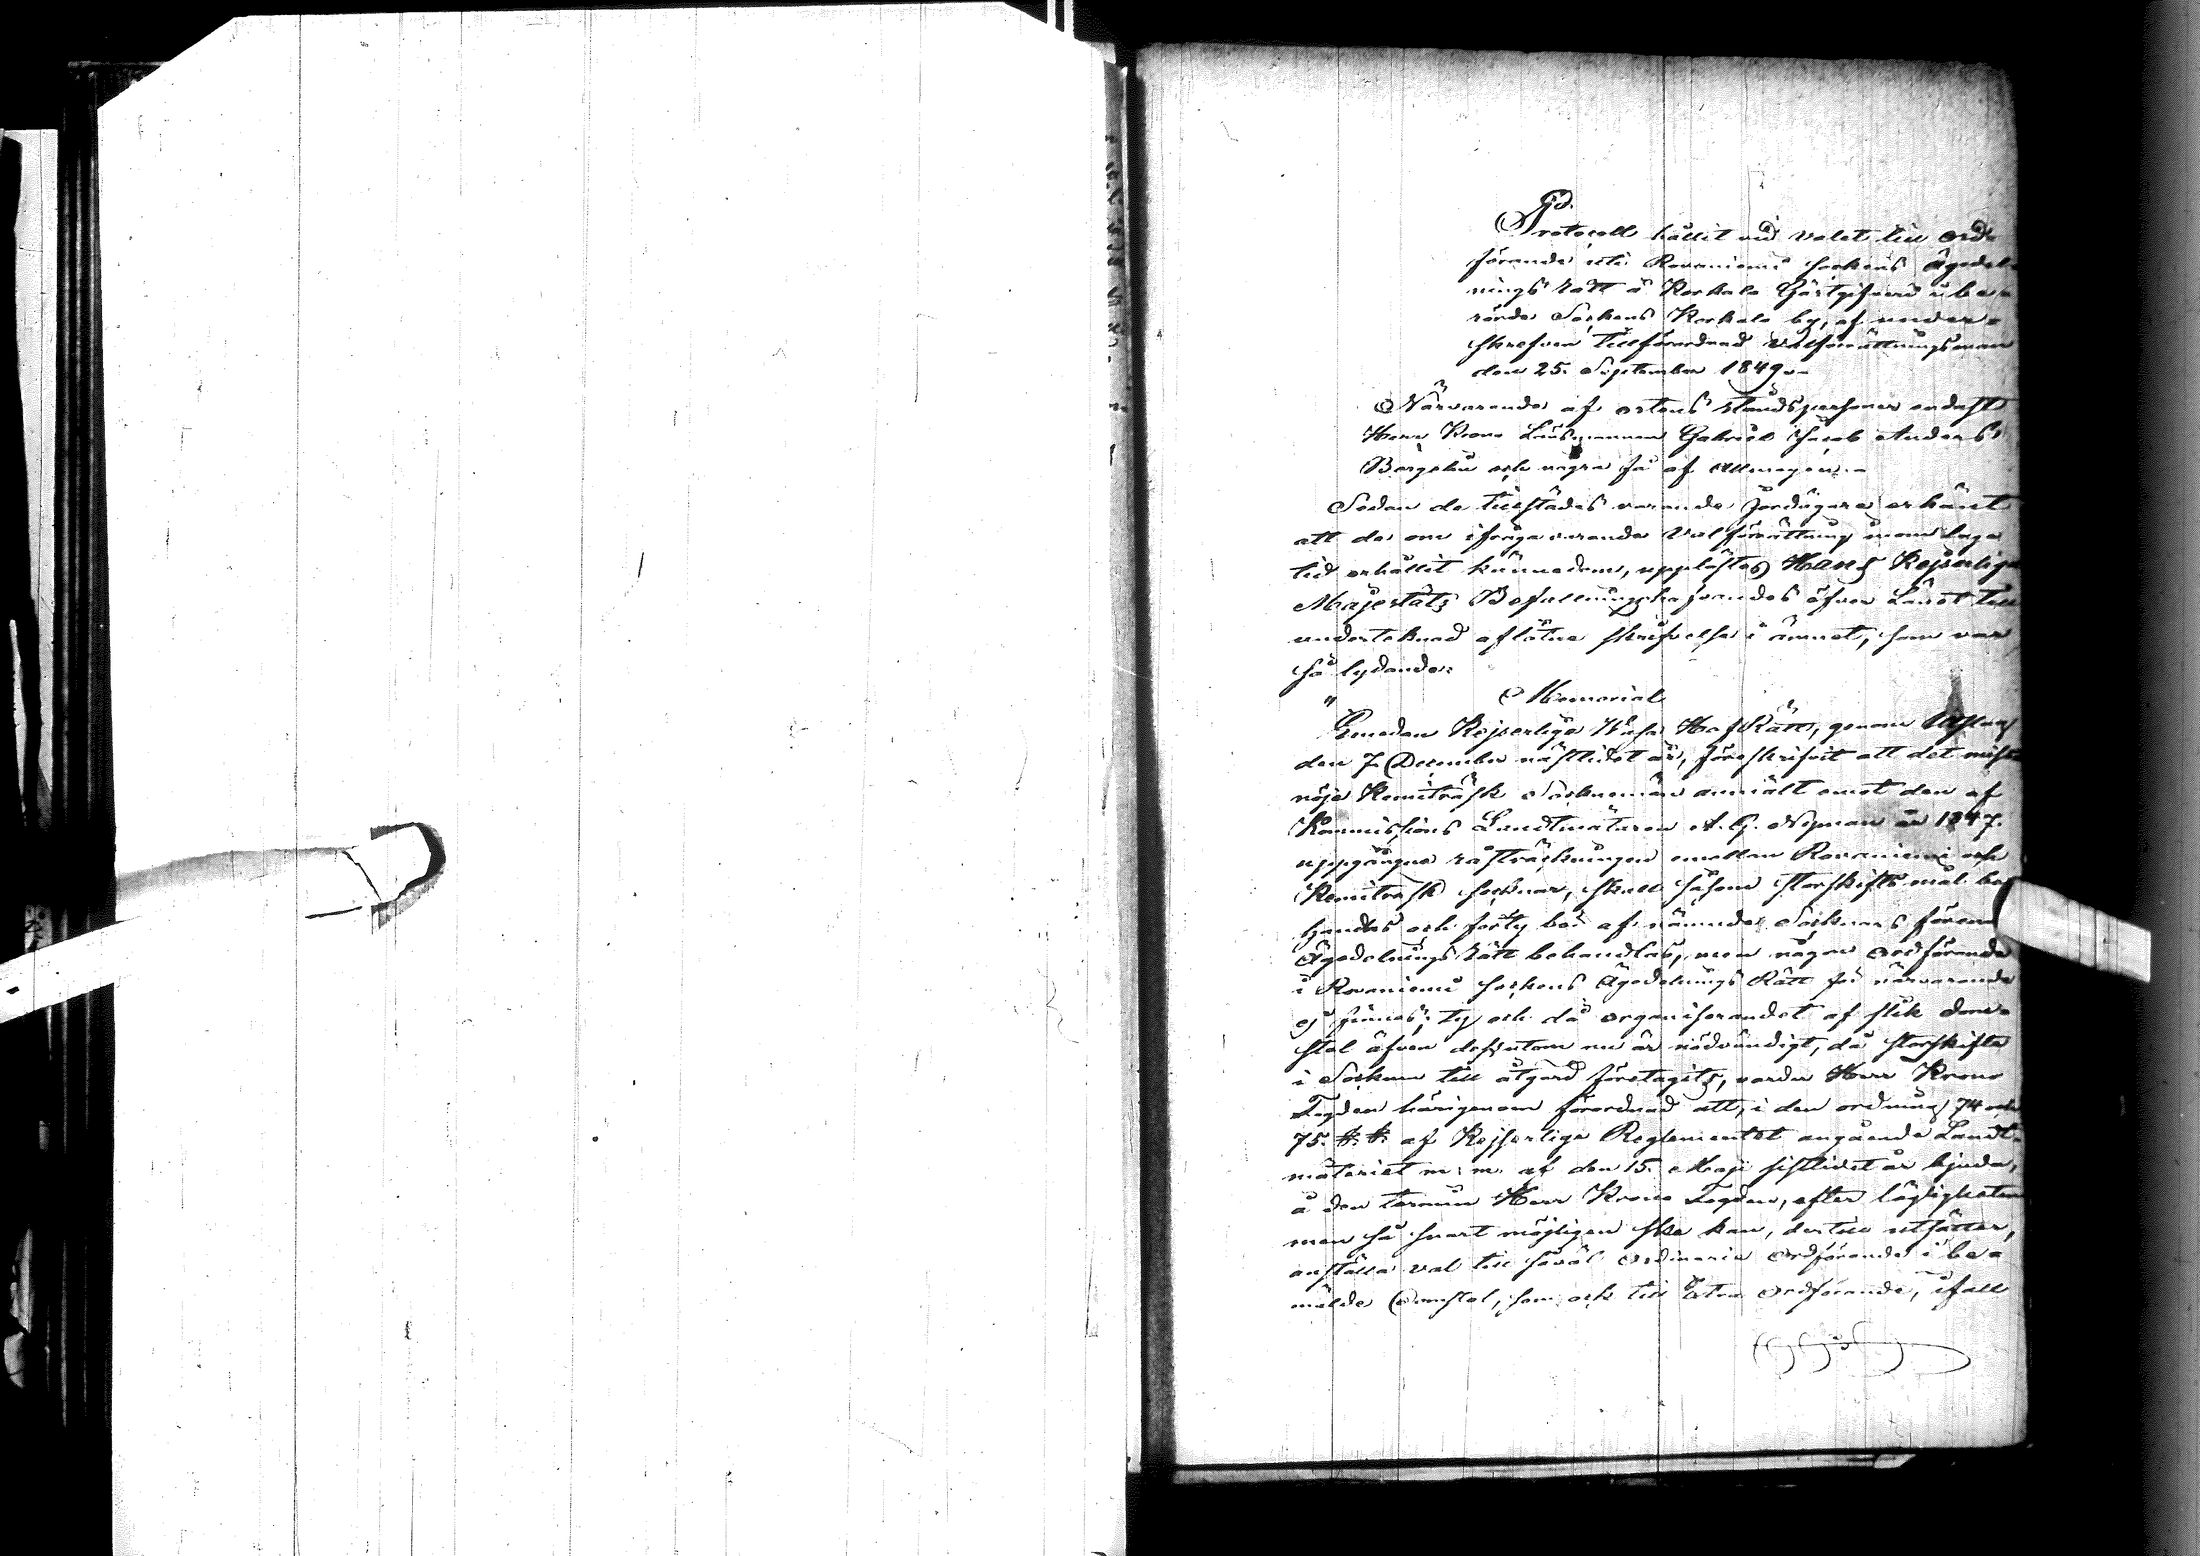 Protocoll hållit vid valet till Ord-
förande uti Rovaniemi sockens Ägodel-
nings Rätt å Korkalo Gästgifveri i be-
rörde Sockens Korkalo by, af under-
skrefven tillförordnad Valförrättningsman
den 25. September 1849.-
Närvarande af ortens ståndspersoner endast
Herr Krono Länsmannen Gabriel Jacob Anders
Bergsbu och några få af Allmogen.-
Sedan de tillstädes varande Jordägare erkänt
att de om ifråga varande Valförrättning inom laga
tid erhållit kännedom, upplästes Hans Kejserliga
Majestäts Befallningshafvandes öfver Länet till
undertecknad aflåtna skrifvelse i ämnet, som var
så lydande:
" Memorial
Emedan Kejserliga Wasa HofRätt, genom Utslag
den 7. December nästlidet år, föreskrifvit att det miss-
nöje Kemiträsk Sockneman anmält emot den af
Kommissions Landtmätaren A. G. Nyman år 1847.
uppgångne råsträckningen emellan Rovaniemi och
Kemiträsk socknar, skall såsom storskifts mål be-
handlas och forty bör af nämnde Socknars förena
Ägodelnings Rätt behandlas, men någon Ordförande
i Rovaniemi sockens Ägodelnings Rätt för närvarande
ej finnes; ty och då organiserandet af slik Dom-
stol äfven dessutom nu är nödvändigt, då storskifte
i Socknen till åtgärd företagits, varder Herr Krono
Fogden härigenom förordnad att, i den ordning 74 och
75. §. §. af Kejserliga Reglementet angående Landt-
mäteriet m: m: af den 15. Maji sistlidet år bjuda,
å den termin Herr Krono Fogden, efter lägligheten
men så snart möjligen ske kan, dertill utsätter,
anställa val till såväl Ordinarie Ordförande i be-
mälde Domstol, som och till Extra Ordförande, ifall